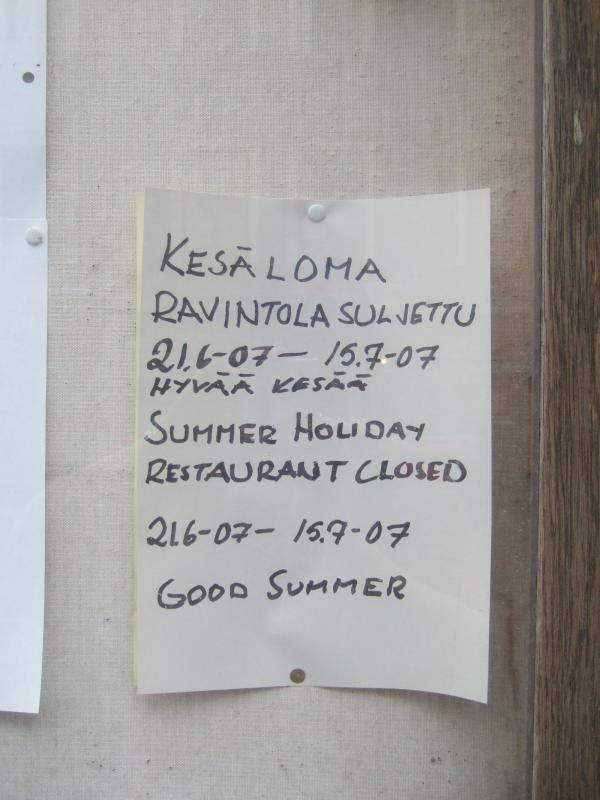 KESÄLOMA
RAVINTOLA SULJETTU
21.6-07 — 15.7-07
HYVÄÄ KESÄÄ
SUMMER HOLIDAY
RESTAURANT CLOSED
21.6-07 — 15.7-07
GOOD SUMMER